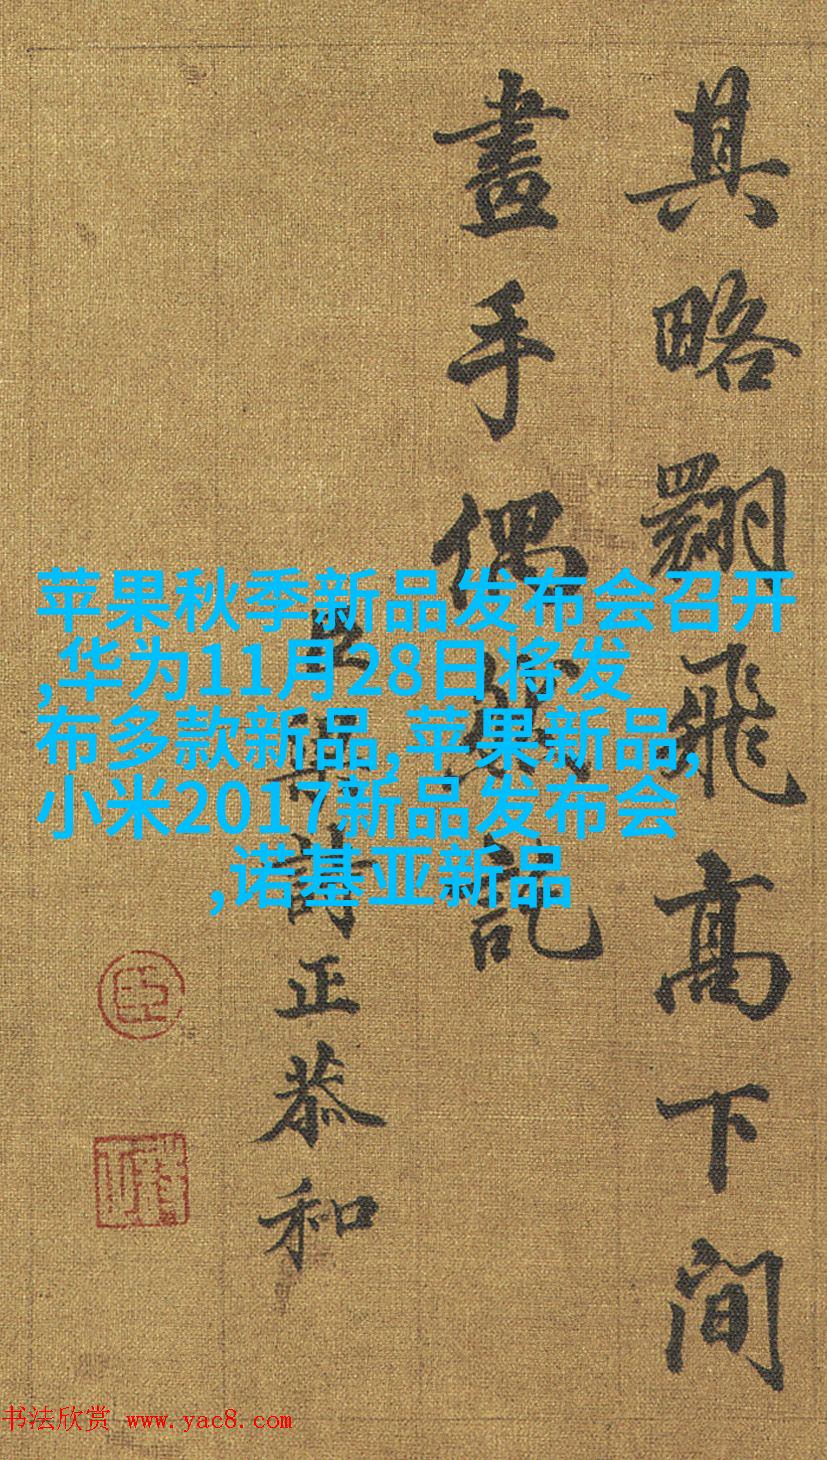 其略翾飛高下間
畫手偶然記
臣梁詩正恭和
臣
苹果秋季新品发布会召开
,华为11月28日将发
布多款新品,苹果新品,
小米2017新品发布会
,诺基亚新品
书法欣赏 www.yac8.com